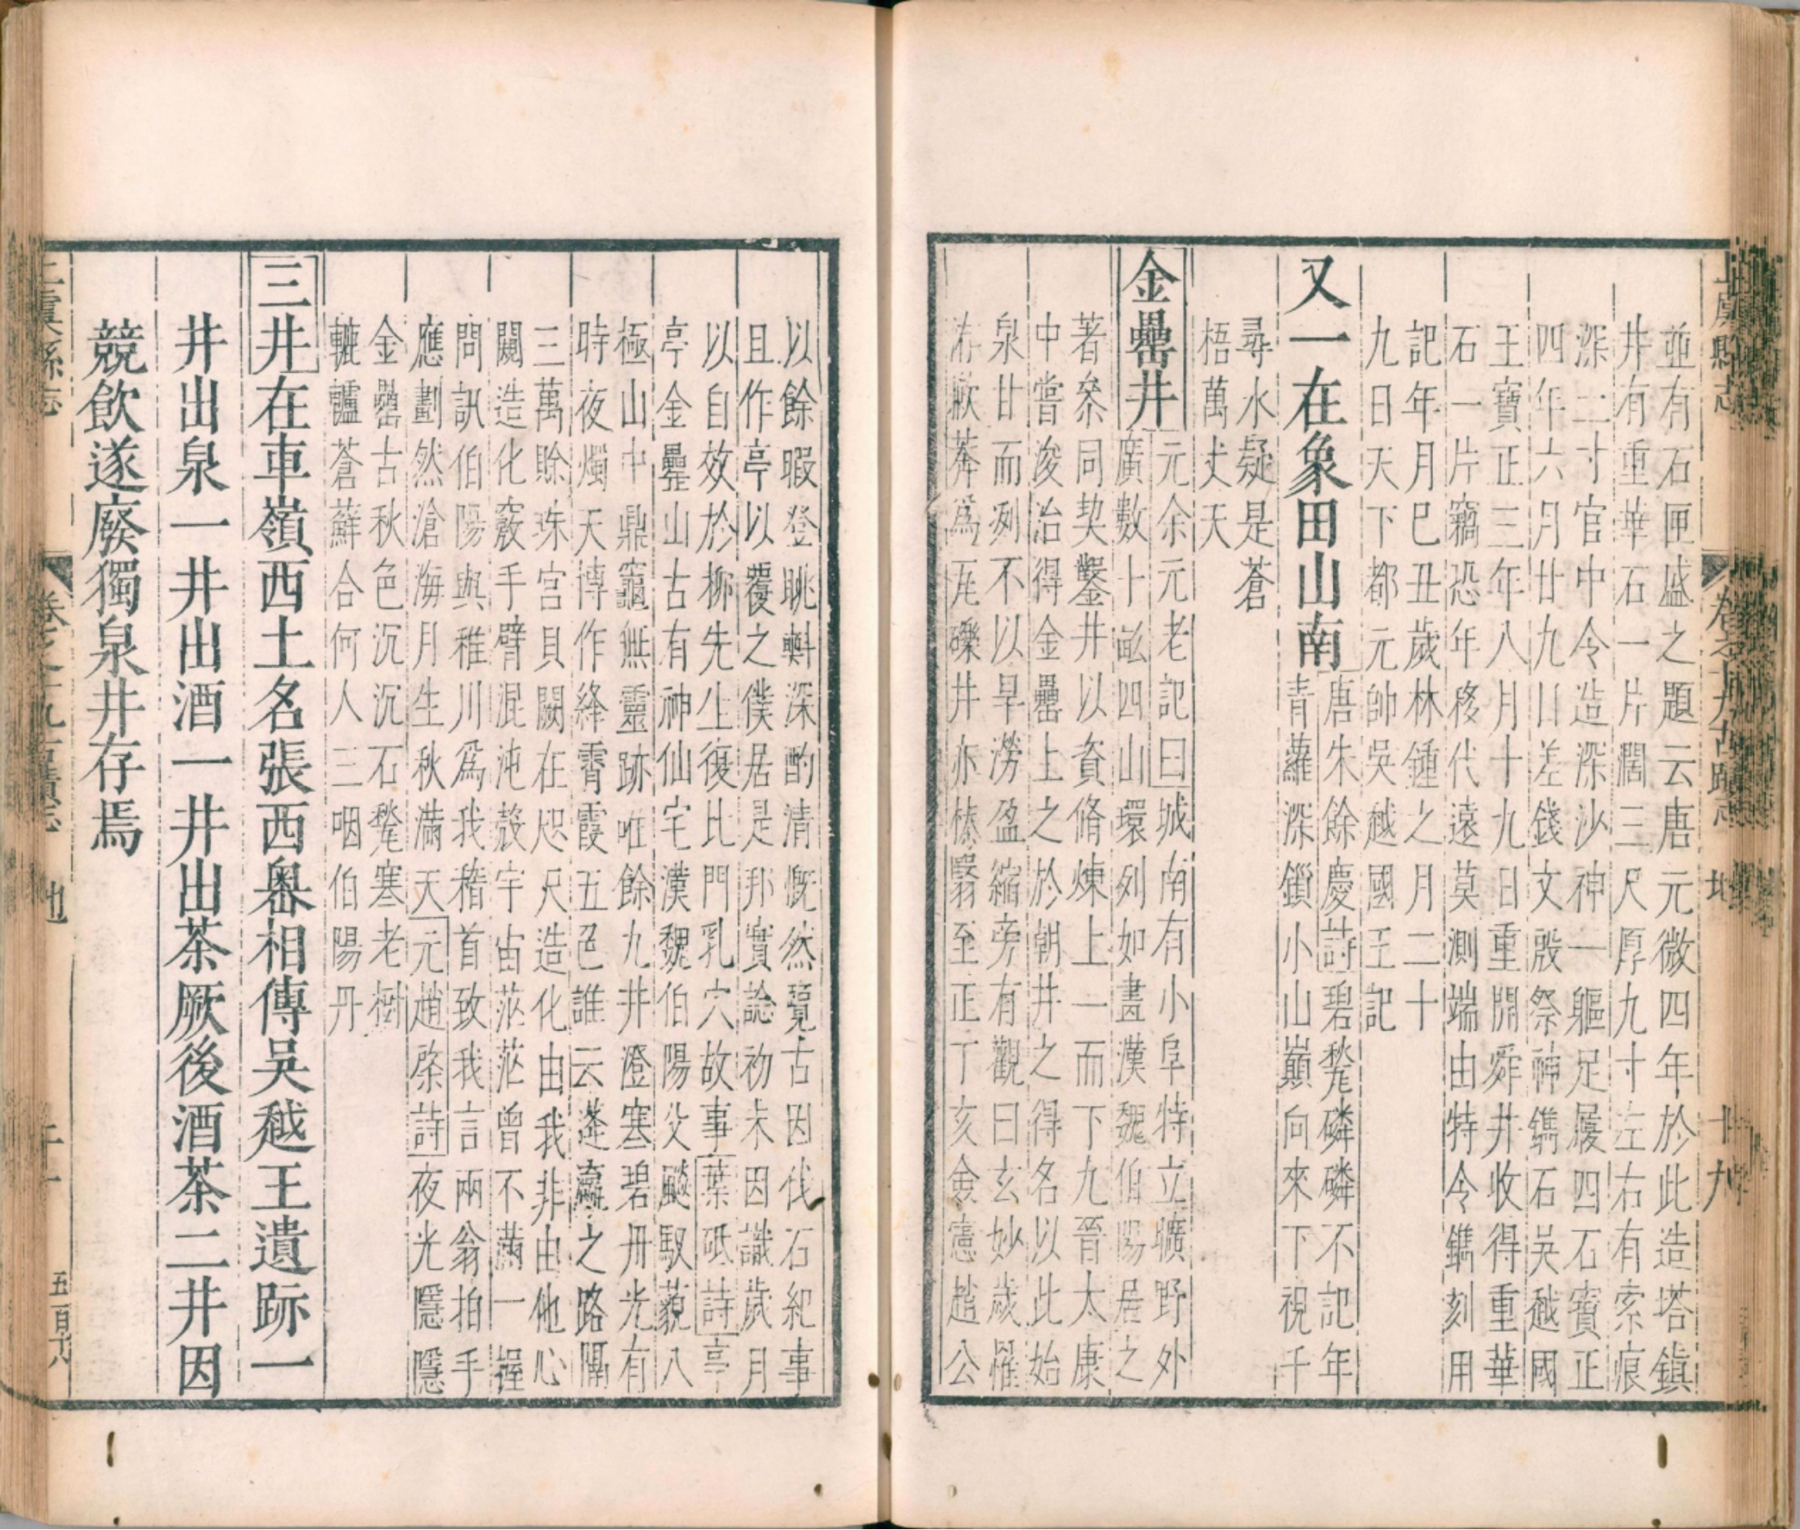 上虞縣志 卷之十九古蹟志 地 十九
並有石匣盛之題云唐元微四年於此造塔鎮
井有重華石一片闊三尺厚九寸左右有索痕
深二寸官中令造深沙神一軀足履四石賓正
四年六月廿九日差錢文殷祭神鐫石吳越國
王寶正三年八月十九日重開舜井收得重華
石一片竊恐年移代遠莫測端由特令鐫刻用
記年月巳丑歲林鍾之月二十
九日天下都元帥吳越國王記
又一在象田山南
唐朱餘慶詩碧甃磷磷不記年
青蘿深鎖小山巔向來下視千
尋水疑是蒼
梧萬丈天
金罍井
元余元老記曰城南有小阜特立曠野外
廣數十畝四山環列如畫漢魏伯陽居之
著叅同契鑿井以資脩煉上一而下九晉太康
中嘗浚治得金罍上之於朝井之得名以此始
泉甘而洌不以旱澇盈縮旁有觀曰玄妙歲懼
莽爲瓦礫井亦榛翳至正丁亥僉憲趙公
以餘暇登眺斠深酌清慨然覽古因伐石紀事
且作亭以覆之僕居是邦實諗初末因識歲月
以自效於柳先生復比門乳穴故事葉砥詩亭
亭金罍山古有神仙宅漢魏伯陽父飈馭藐八
極山中鼎竈無靈跡唯餘九井澄寒碧丹光有
時夜燭天愽作絳霄霞五色誰云蓬瀛之路隔
三萬賒珠宮貝闕在咫尺造化由我非由他心
闚造化竅手劈混沌殼宇宙茫茫曾不滿一握
問訊伯陽與稚川爲我稽首致我言兩翁拍手
應劃然滄海月生秋滿天元趙棨詩夜光隱隱
金罍古秋色沉沉石甃寒老樹
轆轤蒼蘚合何人三咽伯陽丹
三井在車嶺西土名張西奧相傳吳越王遺跡一
井出泉一井出酒一井出茶厥後酒茶二井因
競飲遂廢獨泉井存焉
上虞縣志 卷之十九古蹟志 地 二十 五百八